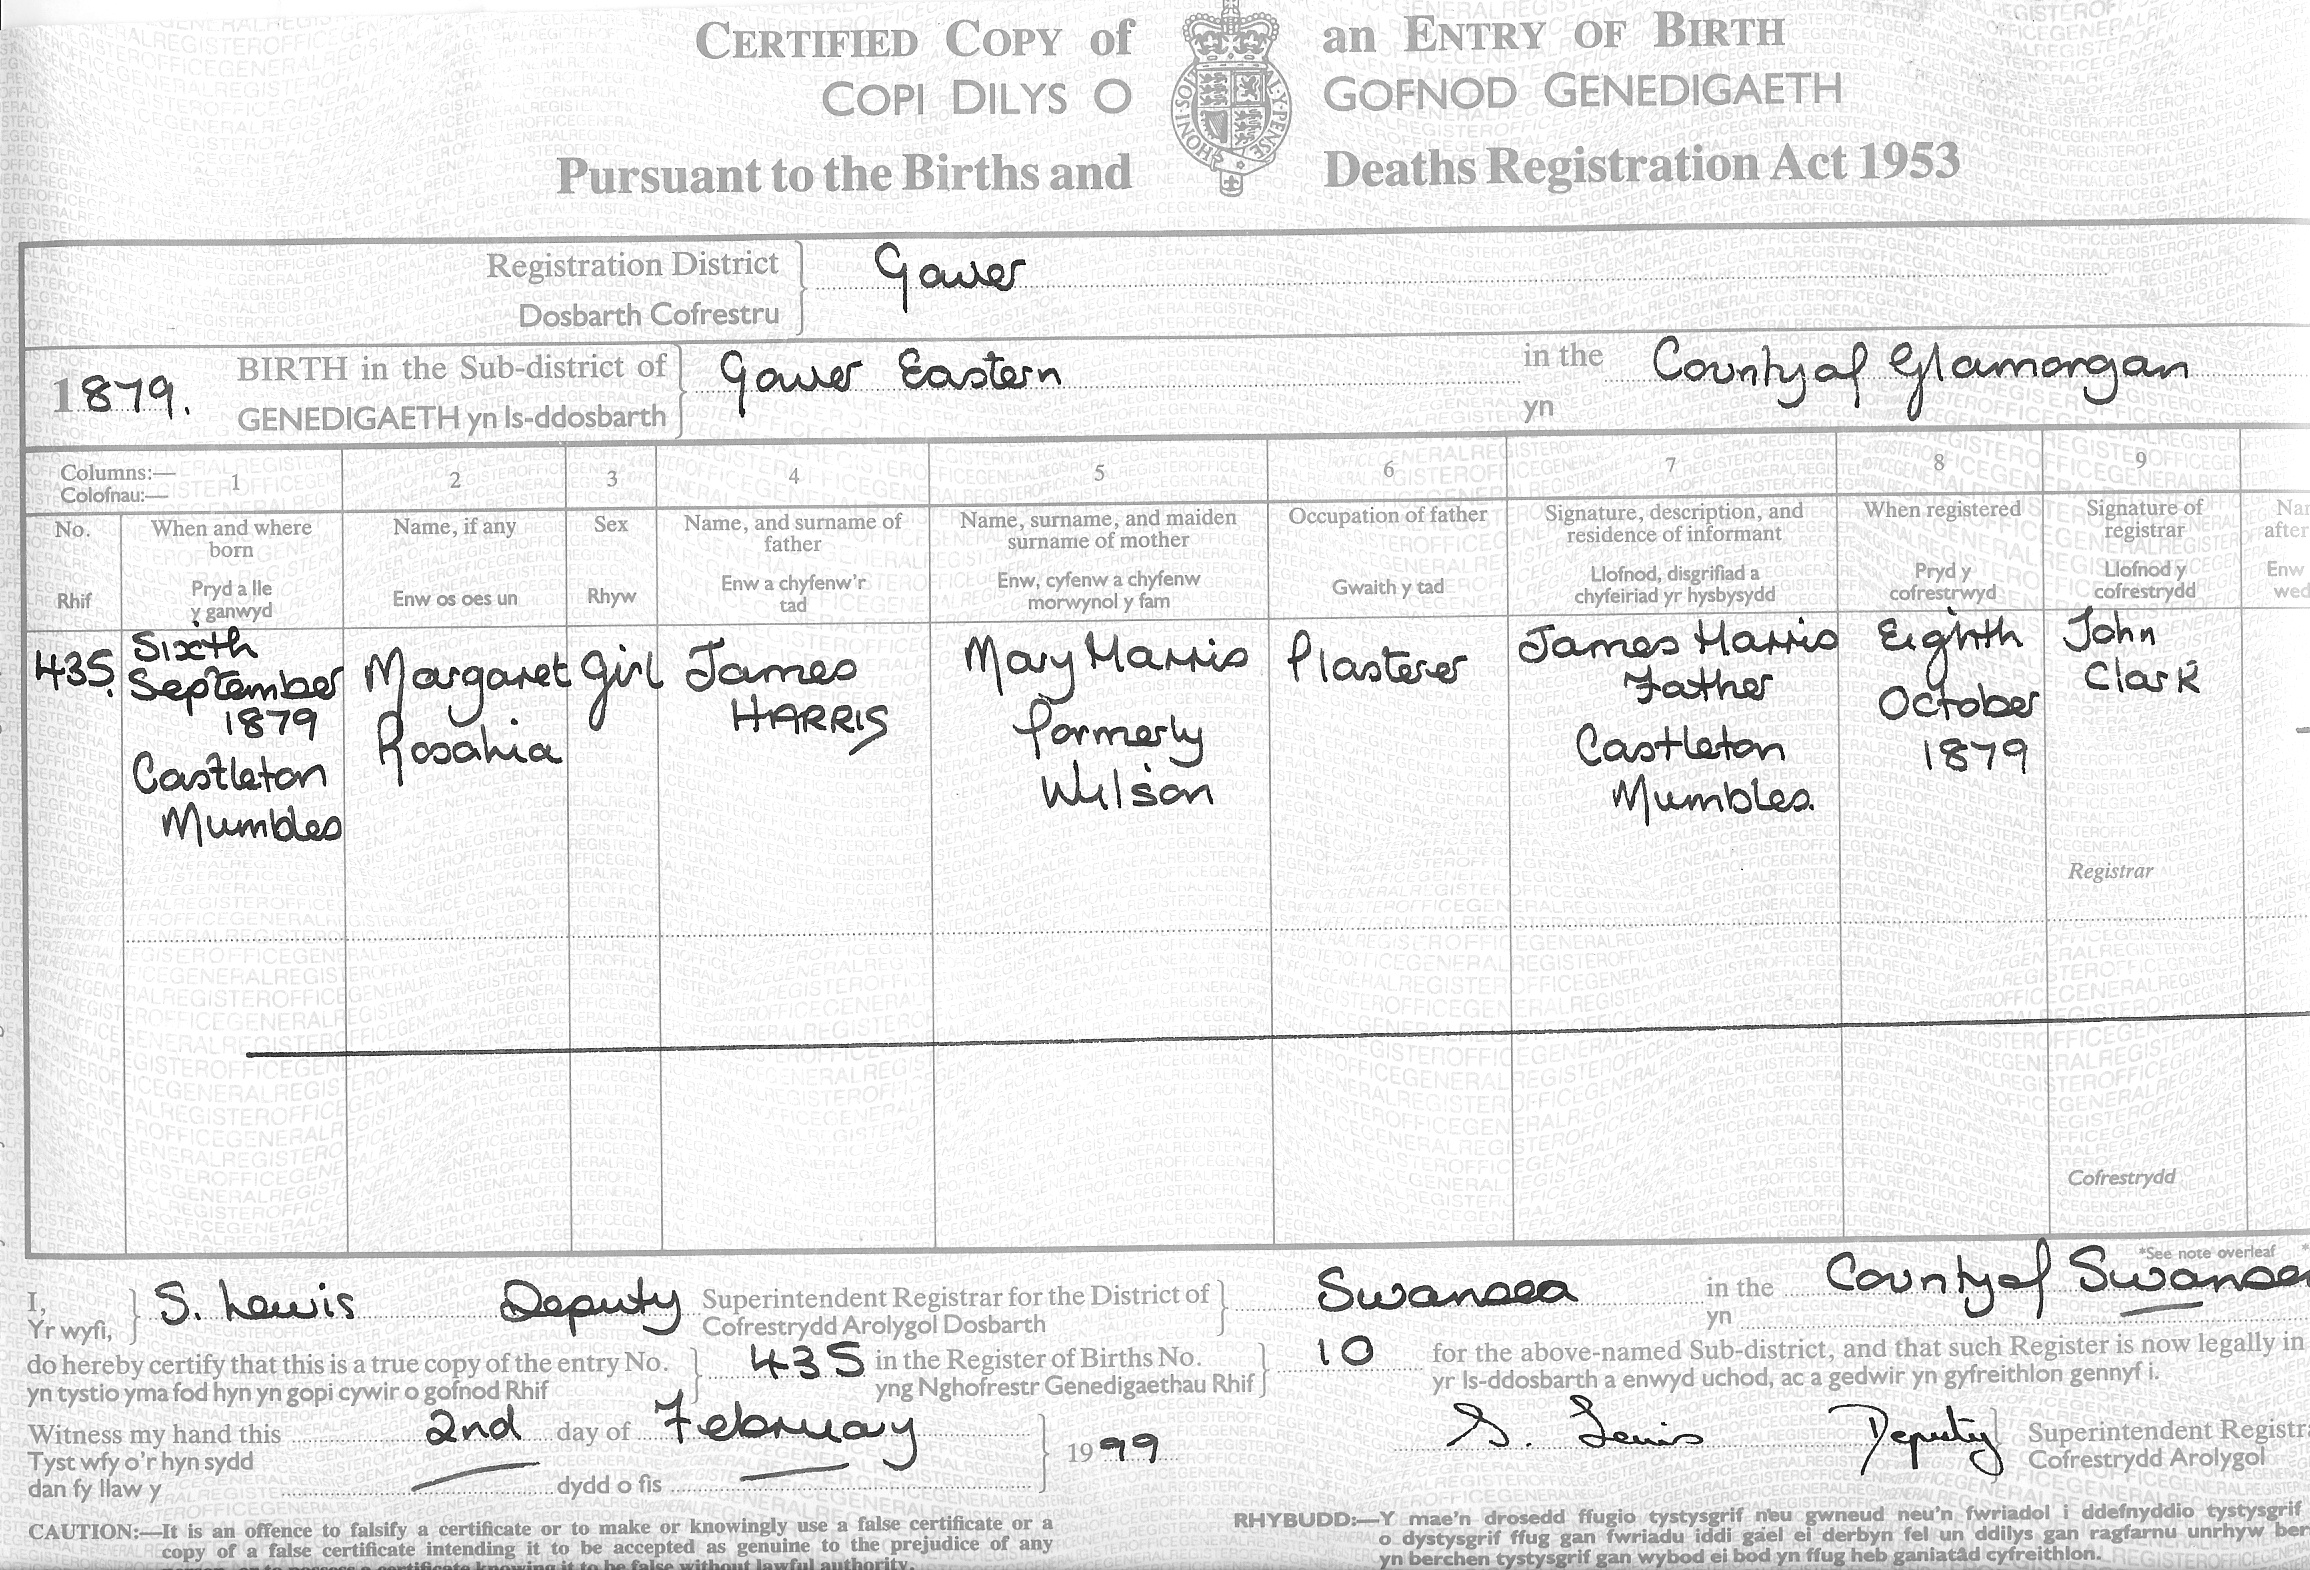 CERTIFIED COPY of an ENTRY OF BIRTH
COPI DILYS O GOFNOD GENEDIGAETH
Pursuant to the Births and Deaths Registration Act 1953
HONI SOIT Y PENSE
Registration District Gower
Dosbarth Cofrestru
1879. BIRTH in the Sub-district of Gower Eastern in the County of Glamorgan
GENEDIGAETH yn Is-ddosbarth yn
Columns:— 1 2 3 4 5 6 7 8 9
Colofnau:—
No. When and where born Name, if any Sex Name, and surname of father Name, surname, and maiden surname of mother Occupation of father Signature, description, and residence of informant When registered Signature of registrar
Rhif Pryd a lle y ganwyd Enw os oes un Rhyw Enw a chyfenw'r tad Enw, cyfenw a chyfenw morwynol y fam Gwaith y tad Llofnod, disgrifiad a chyfeiriad yr hysbysydd Pryd y cofrestrwyd Llofnod y cofrestrydd Enw
after
435.
Sixth
September
1879
Castleton
Mumbles
Margaret
Rosahia
Girl
James
HARRIS
Mary Harris
formerly
Wilson
Plasterer
James Harris
Father
Castleton
Mumbles.
Eighth
October
1879
John
Clark
Registrar
Cofrestrydd
*See note overleaf
I, S. Lewis Deputy Superintendent Registrar for the District of Swansea in the County of Swansea
Yr wyfi, Cofrestrydd Arolygol Dosbarth yn
do hereby certify that this is a true copy of the entry No. 435 in the Register of Births No. 10 for the above-named Sub-district, and that such Register is now legally in
yn tystio yma fod hyn yn gopi cywir o gofnod Rhif yng Nghofrestr Genedigaethau Rhif yr Is-ddosbarth a enwyd uchod, ac a gedwir yn gyfreithlon gennyf i.
Witness my hand this 2nd day of February 1999 S. Lewis Deputy Superintendent Registr
Tyst wfy o'r hyn sydd Cofrestrydd Arolygol
dan fy llaw y dydd o fis
CAUTION:—It is an offence to falsify a certificate or to make or knowingly use a false certificate or a
copy of a false certificate intending it to be accepted as genuine to the prejudice of any
certificate knowing it to be false without lawful authority.
RHYBUDD:—Y mae'n drosedd ffugio tystysgrif neu gwneud neu'n fwriadol i ddefnyddio tystysgrif
o dystysgrif ffug gan fwriadu iddi gael ei derbyn fel un ddilys gan ragfarnu unrhyw
yn berchen tystysgrif gan wybod ei bod yn ffug heb ganiatâd cyfreithlon.